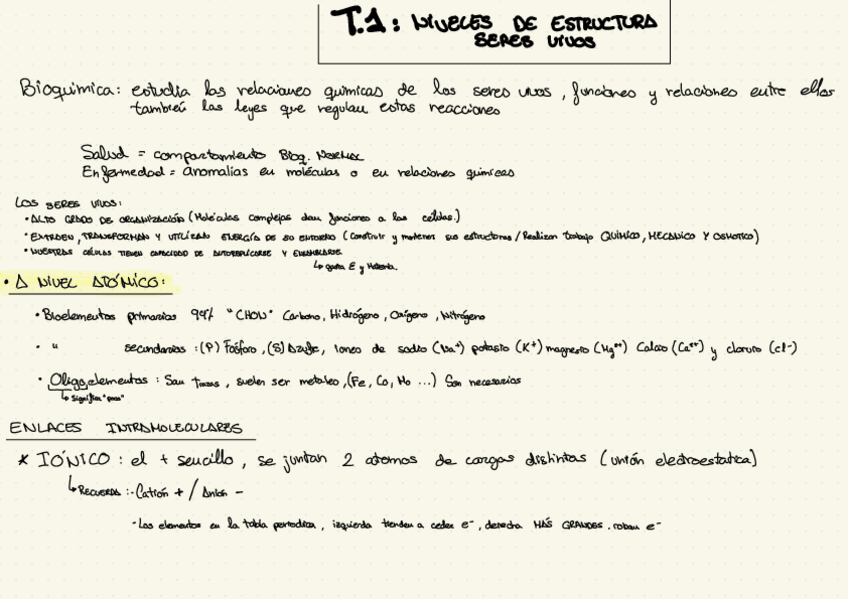 T.1: NIVELES DE ESTRUCTURA
SERES VIVOS
Bioquimica: estudia las relaciones quimicas de los seres vivos, funciones y relaciones entre ellos
también las leyes que regulan estas reacciones
Salud = comportamiento Bioq. Normal
Enfermedad = anomalias en moléculas o en relaciones quimicas
LOS SERES VIVOS:
• ALTO GRADO DE ORGANIZACIÓN (Moléculas complejas dan funciones a las células.)
• EXTRAEN, TRANSFORMAN Y UTILIZAN ENERGÍA DE SU ENTORNO (Construir y mantener sus estructuras / Realizan trabajo QUÍMICO, MECANICO Y OSMOTICO)
• NUESTRAS CÉLULAS TIENEN CAPACIDAD DE AUTOREPLICARSE Y ENSAMBLARSE
↳ gasta E y Materia.
• A NIVEL ATÓMICO:
• Bioelementos primarios 99% "CHON" Carbono, Hidrógeno, Oxígeno, Nitrógeno
• " secundarios: (P) Fósforo, (S) Azufre, iones de sodio (Na⁺) potasio (K⁺) magnesio (Mg⁺⁺) Calcio (Ca⁺⁺) y cloruro (cl⁻)
• Oligoelementos: Son trazas, suelen ser metales, (Fe, Co, Mo ...) Son necesarios
↳ significa "poco"
ENLACES INTRAMOLECULARES
* IÓNICO: el + sencillo, se juntan 2 atomos de cargas distintas (unión electroestatica)
↳ RECUERDA: · Catión + / Anión -
· Los elementos en la tabla periodica, izquierda tienden a ceder e⁻, derecha MÁS GRANDES. roban e⁻